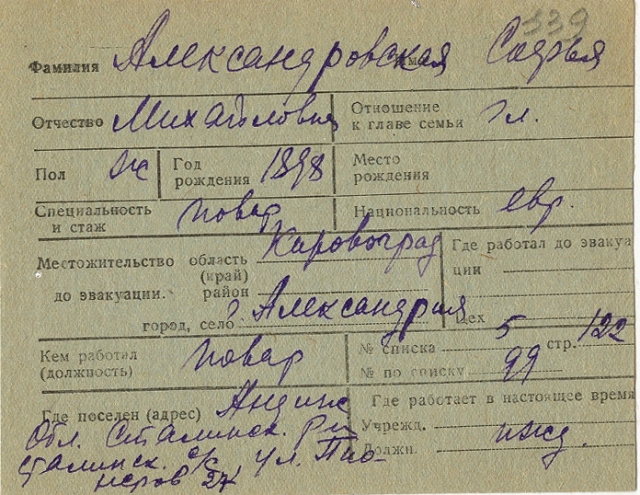 139
Фамилия Александровская Имя Софья
Отчество Михайловна Отношение к главе семьи гл.
Пол ж Год рождения 1898 Место рождения
Специальность и стаж повар Национальность евр.
Местожительство область (край) Кировоград Где работал до эвакуации
до эвакуации. район
город, село г. Александрия Цех
Кем работал (должность) повар № списка 5 стр. 122
№ по списку 99
Где поселен (адрес) Андиж Где работает в настоящее время
Обл. Сталинск. Р-н Учрежд. ижд.
Сталинск. с/с ул. Пио- Должн.
неров 27